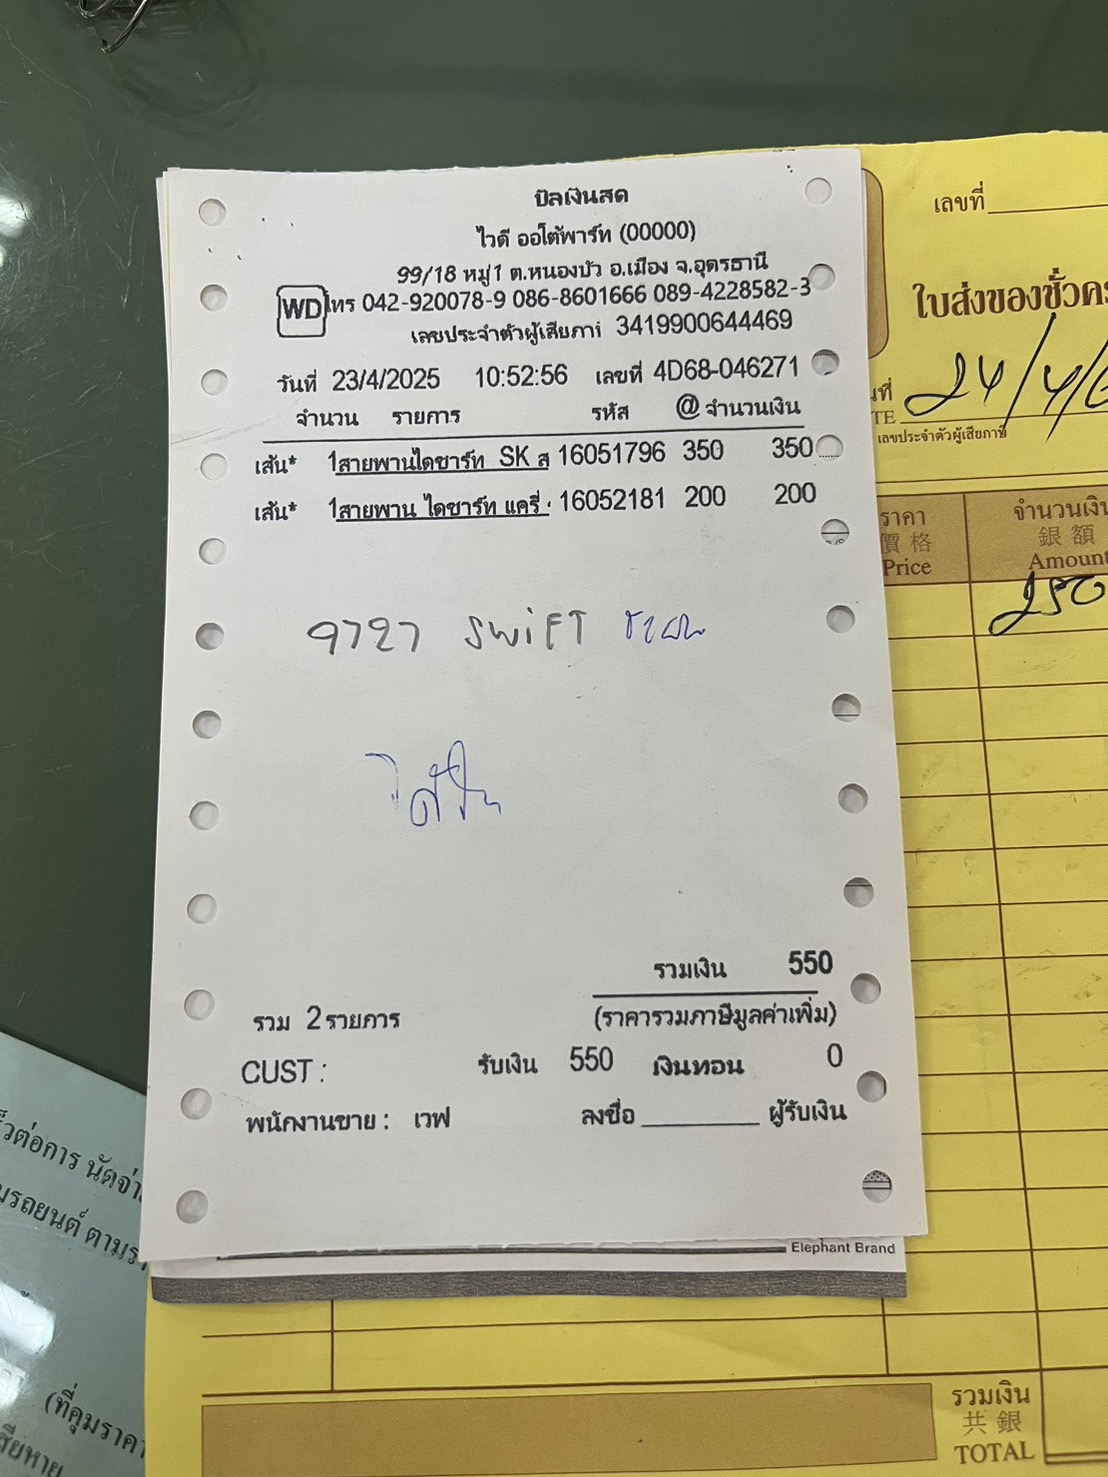 บิลเงินสด
ไวดี ออโต้พาร์ท (00000)
99/18 หมู่1 ต.หนองบัว อ.เมือง จ.อุดรธานี
WD โทร 042-920078-9 086-8601666 089-4228582-3
เลขประจำตัวผู้เสียภาษี 3419900644469
วันที่ 23/4/2025 10:52:56 เลขที่ 4D68-046271
จำนวน รายการ รหัส @ จำนวนเงิน
เส้น* 1สายพานไดชาร์ท SK ส 16051796 350 350
เส้น* 1สายพาน ไดชาร์ท แครี่ 16052181 200 200
9727 SWIFT
รวมเงิน 550
รวม 2รายการ (ราคารวมภาษีมูลค่าเพิ่ม)
CUST : รับเงิน 550 เงินทอน 0
พนักงานขาย : เวฟ ลงชื่อ ผู้รับเงิน
Elephant Brand
เลขที่
ใบส่งของชั่วคร
24/4/6
เลขประจำตัวผู้เสียภาษี
ราคา จำนวนเงิน
價格 銀額
Price Amount
250
รวมเงิน
共銀
TOTAL
ต่อการ นัดจ่า
มรถยนต์ ตามร
(ที่คุมราคา
สียหาย